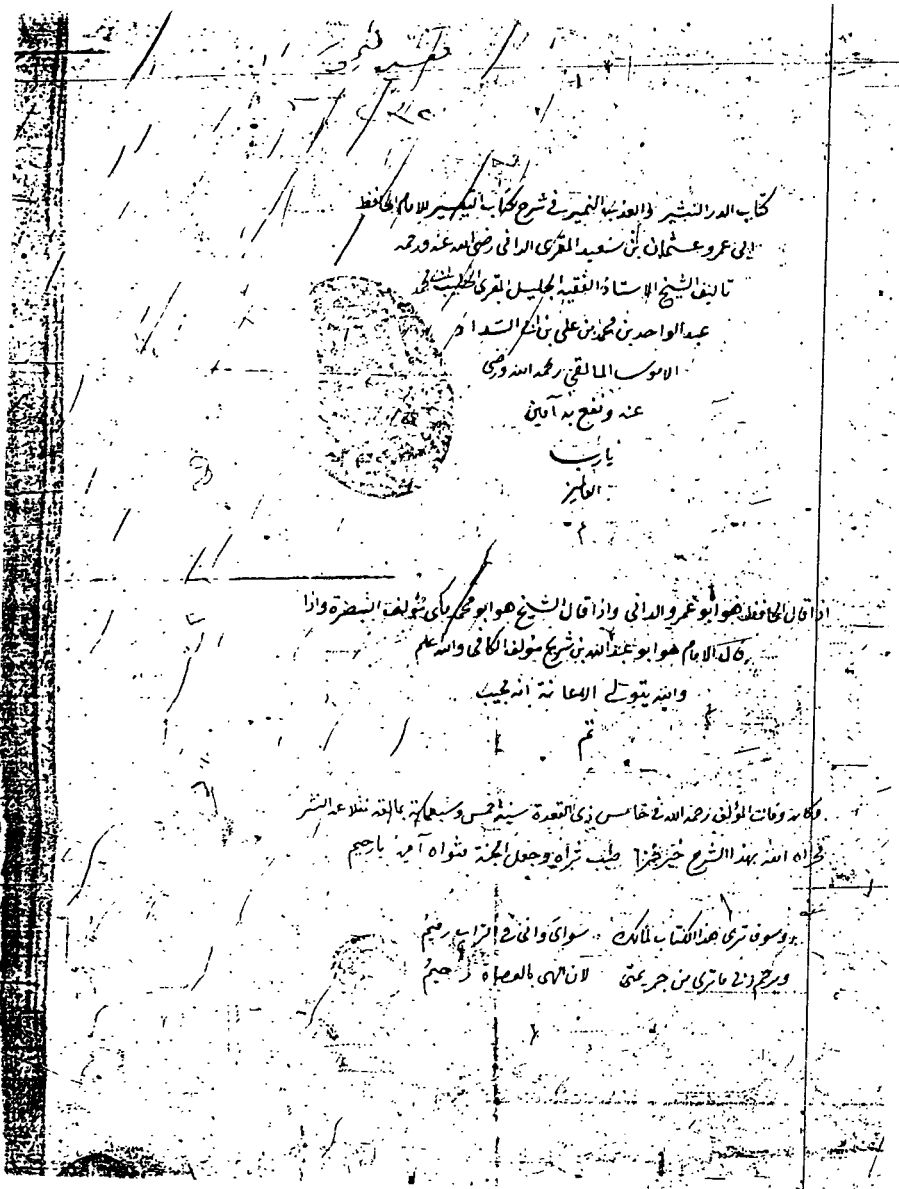 كتاب الدر النثير والعذب النمير في شرح كتاب التيسير للامام الحافظ
ابى عمرو عثمان بن سعيد المقرى الدانى رضى الله عنه ورحمه
تاليف الشيخ الاستاذ الفقيه الجليل المقرى الخطيب ابى محمد
عبد الواحد بن محمد بن على بن ابى السداد
الاموى المالقى رحمه الله ورضى
عنه ونفع به آمين
يارب
العالمين
م
اذا قال الحافظ هو ابو عمرو الدانى واذا قال الشيخ هو ابو محمد مكى مؤلف التبصرة واذا
قال الامام هو ابو عبد الله بن شريح مؤلف الكافى والله علم
والله يتولى الاعانة انه مجيب
تم
وكان وفات المؤلف رحمه الله فى خامس ذى القعدة سنة خمس وسبعمائة بمالقه نقلا عن النشر
فجزاه الله بهذا الشرح خير طيب ثراه وجعل الجنة مثواه آمين يارحيم
وسوف ترى هذا الكتاب لمالك سواى وانى فى التراب رميم
ويرحم ما ترى من جريمتى لان الهى بالعصاة رحيم